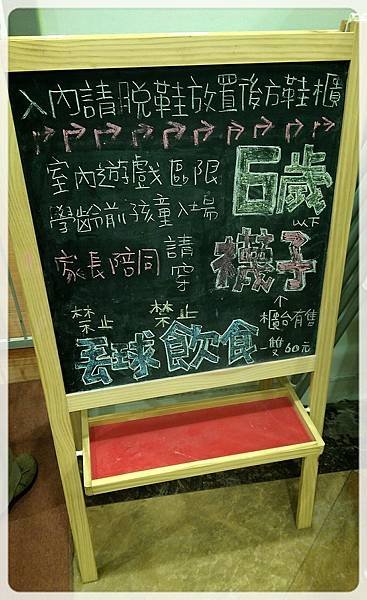 入內請脫鞋放置後方鞋櫃
室內遊戲區限
學齡前孩童入場
6歲
以下
家長陪同
請穿
襪子
↑
櫃台有售
一雙60元
禁止
丟球
禁止
飲食